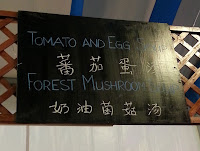 TOMATO AND EGG
蕃茄蛋汤
FOREST MUSHROOM
奶油菌菇汤